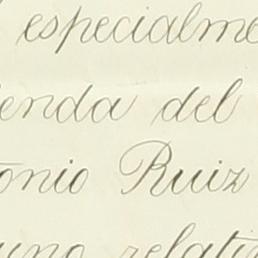 especialme
ienda del
tonio Ruiz
uno relati